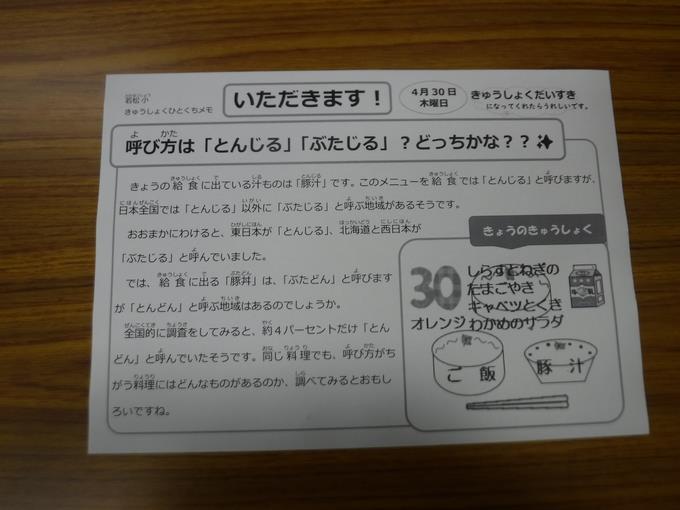 若松小
きゅうしょくひとくちメモ
いただきます！
４月３０日
木曜日
きゅうしょくだいすき
になってくれたらうれしいです。
呼び方は「とんじる」「ぶたじる」？どっちかな？？
きょうの給食に出ている汁ものは「豚汁」です。このメニューを給食では「とんじる」と呼びますが、
日本全国では「とんじる」以外に「ぶたじる」と呼ぶ地域があるそうです。
おおまかにわけると、東日本が「とんじる」、北海道と西日本が
「ぶたじる」と呼んでいました。
では、給食に出る「豚丼」は、「ぶたどん」と呼びます
が「とんどん」と呼ぶ地域はあるのでしょうか。
全国的に調査をしてみると、約４パーセントだけ「とん
どん」と呼んでいたそうです。同じ料理でも、呼び方がち
がう料理にはどんなものがあるのか、調べてみるとおもし
ろいですね。
きょうのきゅうしょく
30
しらすとねぎの
たまごやき
キャベツとくき
わかめのサラダ
オレンジ
ご飯
豚汁